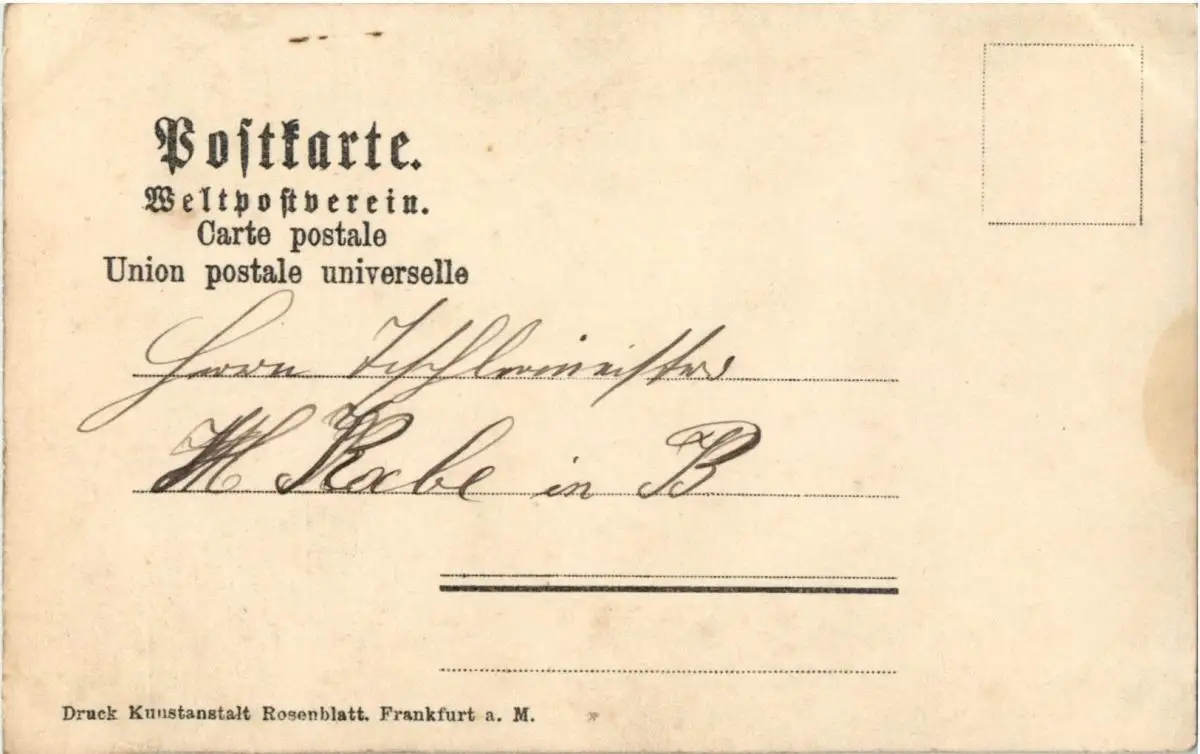 Postkarte.
Weltpostverein.
Carte postale
Union postale universelle
Herrn Tischlermeister
H Rabe in B
Druck Kunstanstalt Rosenblatt. Frankfurt a. M.